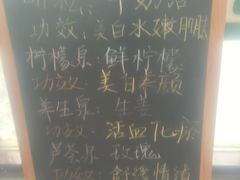 功效:美白水嫩肌肤
柠檬泉:鲜柠檬
功效:美白养颜
养生泉:生姜
功效:活血化瘀
芦荟泉 玫瑰
功效:舒缓情绪